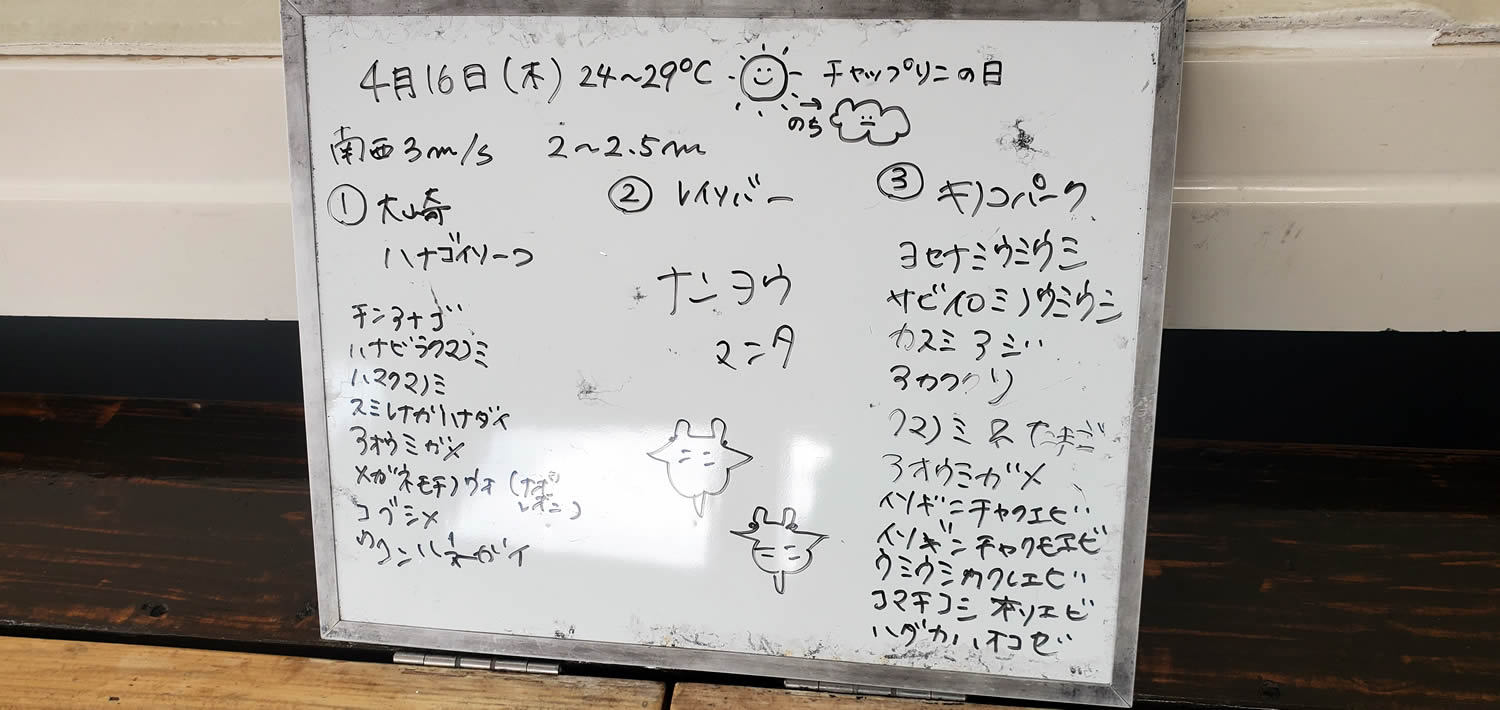 4月16日(木) 24~29℃ チャップリンの日
のち
南西3m/s 2~2.5m
① 大崎
ハナゴイリーフ
チンアナゴ
ハナビラクマノミ
ハマクマノミ
スミレナガハナダイ
アオウミガメ
メガネモチノウオ(ナポレオン)
コブシメ
② レインバー
ナンヨウ
マンタ
③ キノコパーク
ヨセナミウミウシ
サビイロミノウミウシ
カスミアジ
アカククリ
クマノミ&たまご
アオウミガメ
イソギンチャクエビ
イソギンチャクモエビ
ウミウシカクレエビ
コマチコシオリエビ
ハダカハオコゼ